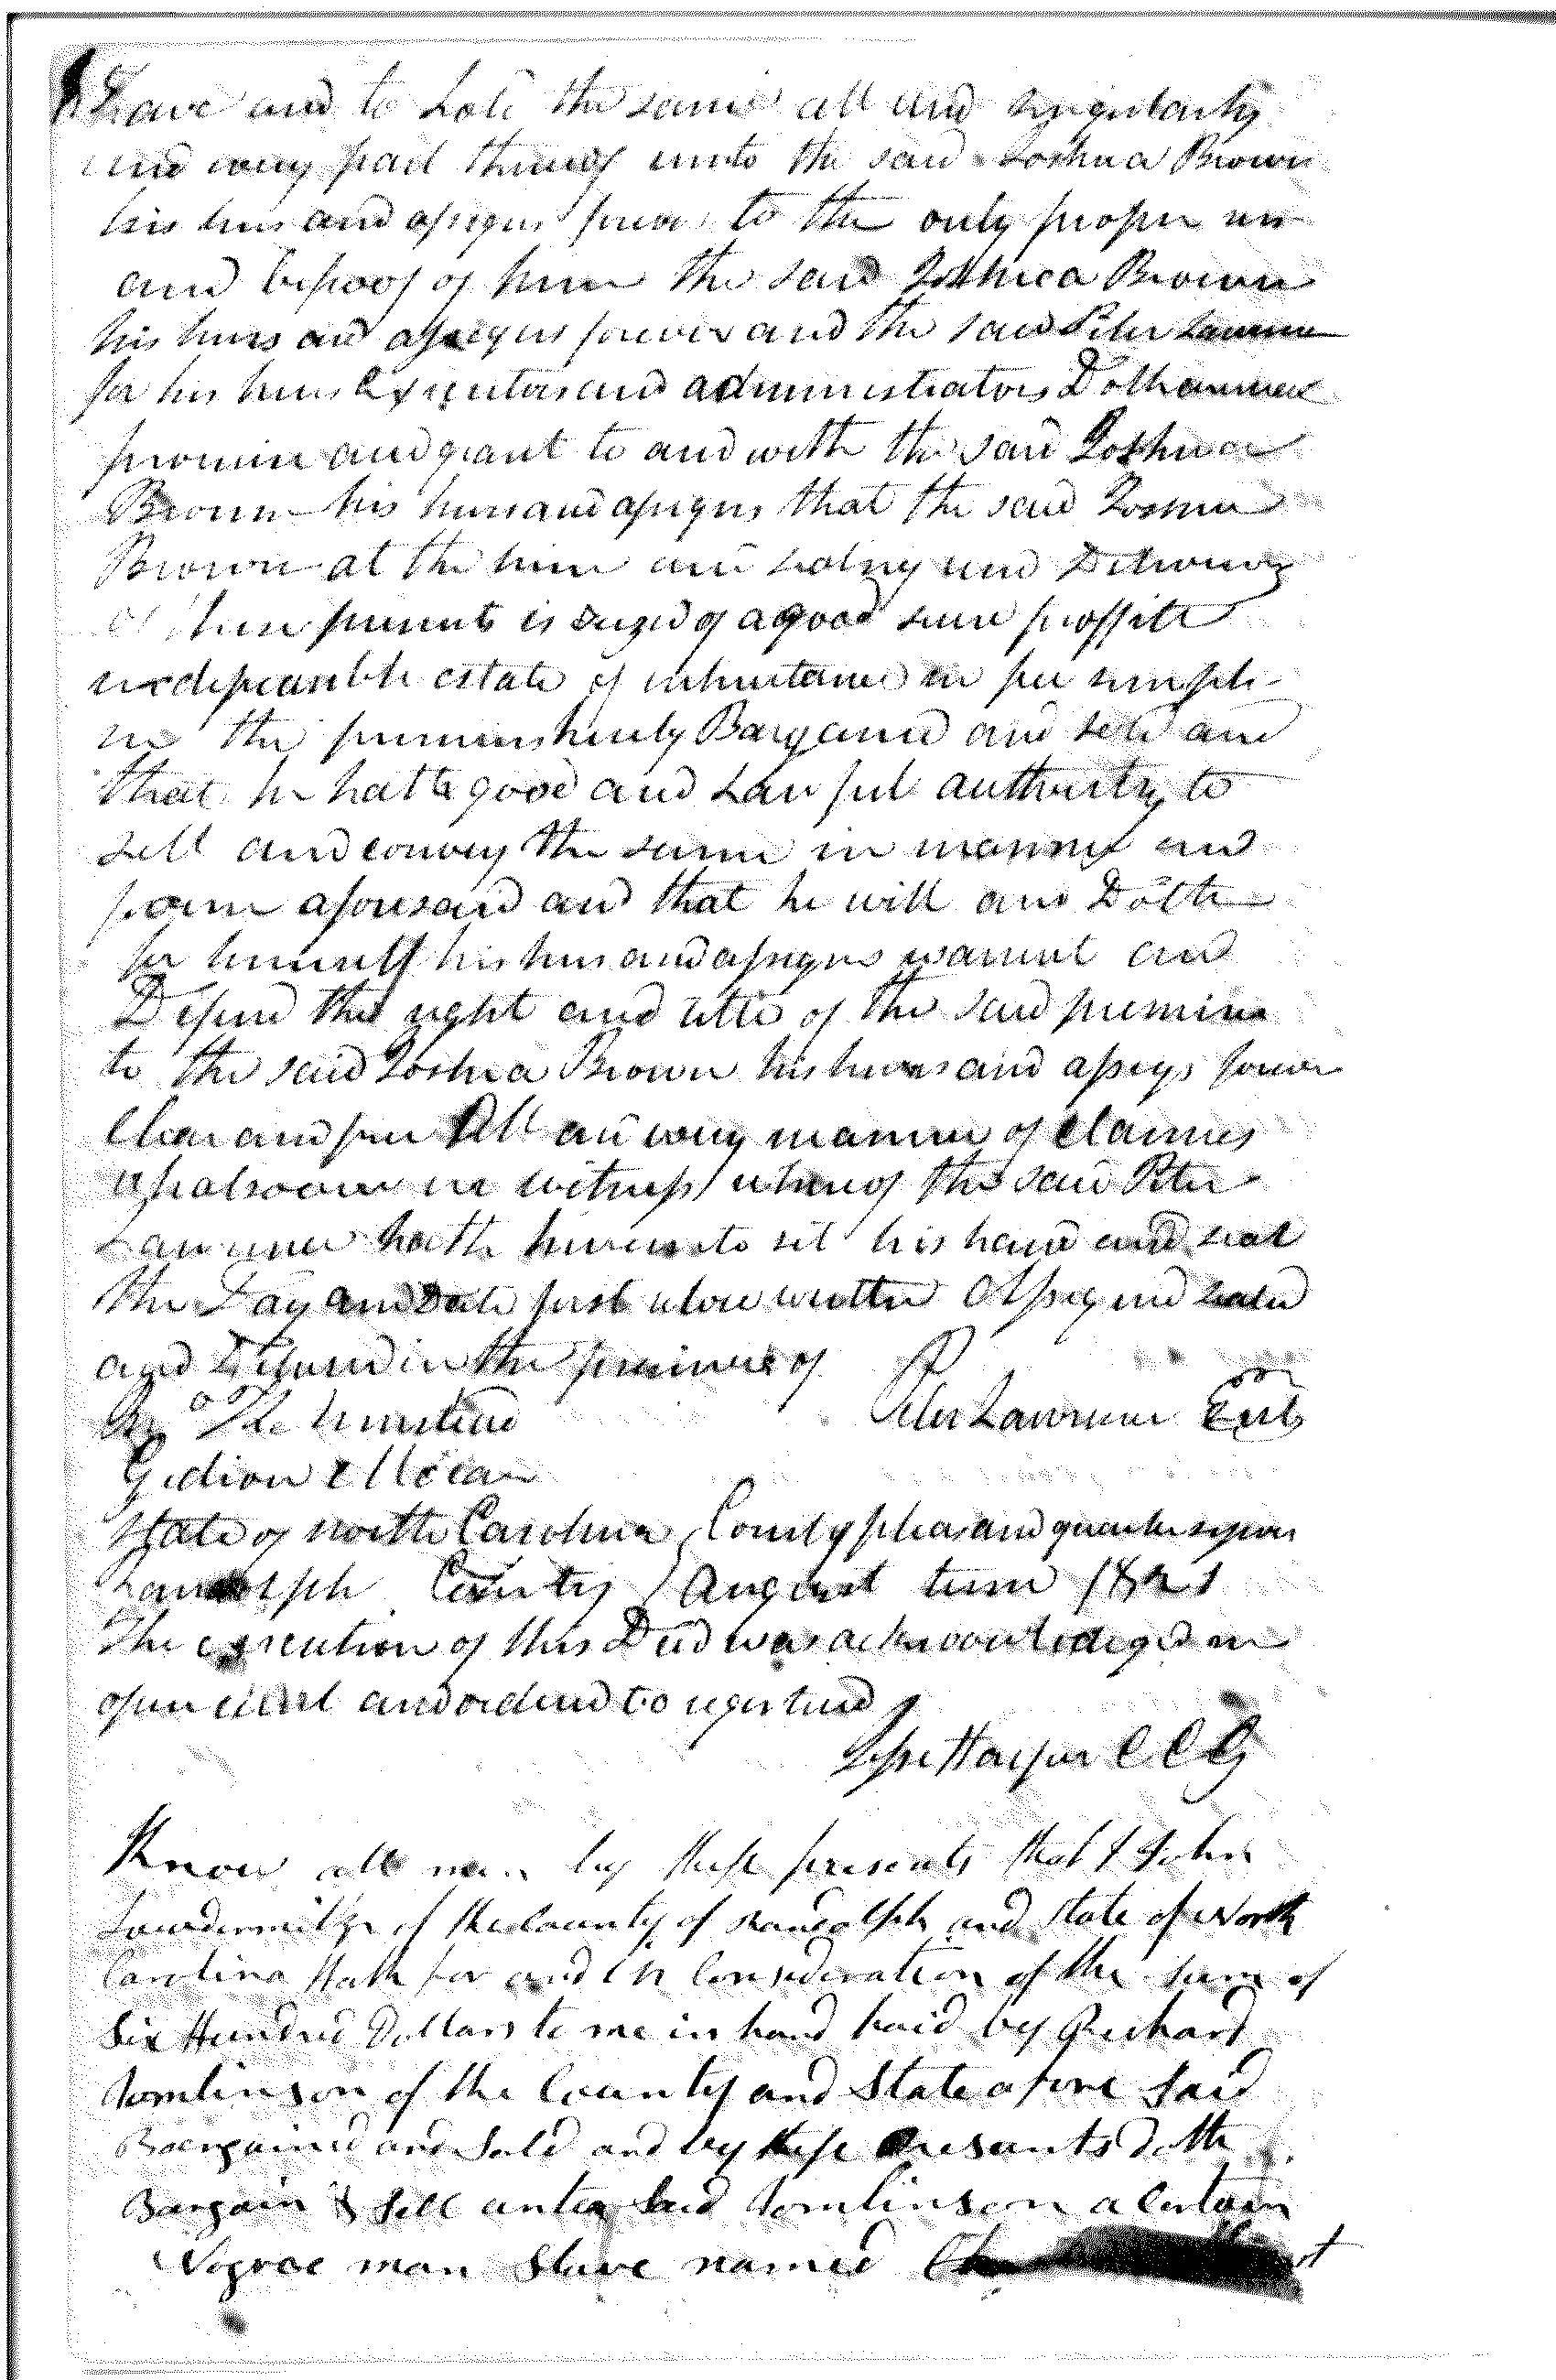 Have and to hold the same all and singularly
and every part thereof unto the said Joshua Brown
his heirs and assigns forever to the only proper use
and behoof of him the said Joshua Brown
his heirs and assigns forever and the said Peter Lawrence
for his heirs Executors and administrators Doth covenant
promise and grant to and with the said Joshua
Brown his heirs and assigns that the said Joshua
Brown at the time and sealing and Delivery
of these presents is seized of a good sure
indefeasible estate of inheritance in fee simple
in the premises hereby Bargained and sold and
that he hath good and Lawful authority to
sell and convey the same in manner and
form aforesaid and that he will and Doth
for himself his heirs and assigns warrant and
Defend the right and title of the said premises
to the said Joshua Brown his heirs and assigns forever
Clear and free All and every manner of Claimes
whatsoever in witness whereof the said Peter
Lawrence hath hereunto set his hand and seal
the Day and Date first above written Assigned sealed
and in the presence of
Peter Lawrence Seal
Gidion
State of North Carolina Court of pleas and quarter sessions
Randolph County August term 1821
The execution of this Deed was acknowledged in
open court and ordered to registered
Jesse Harper C C C
Know all men by these presents that I John
Lowdermilk of the County of Randolph and State of North
Carolina Hath for and in Consideration of the sum of
Six Hundred Dollars to me in hand paid by Richard
Tomlinson of the County and State afore Said
Baergained and Sold and by these Presants doth
Bargain & Sell unto Said Tomlinson a Certain
Negroe man Slave named